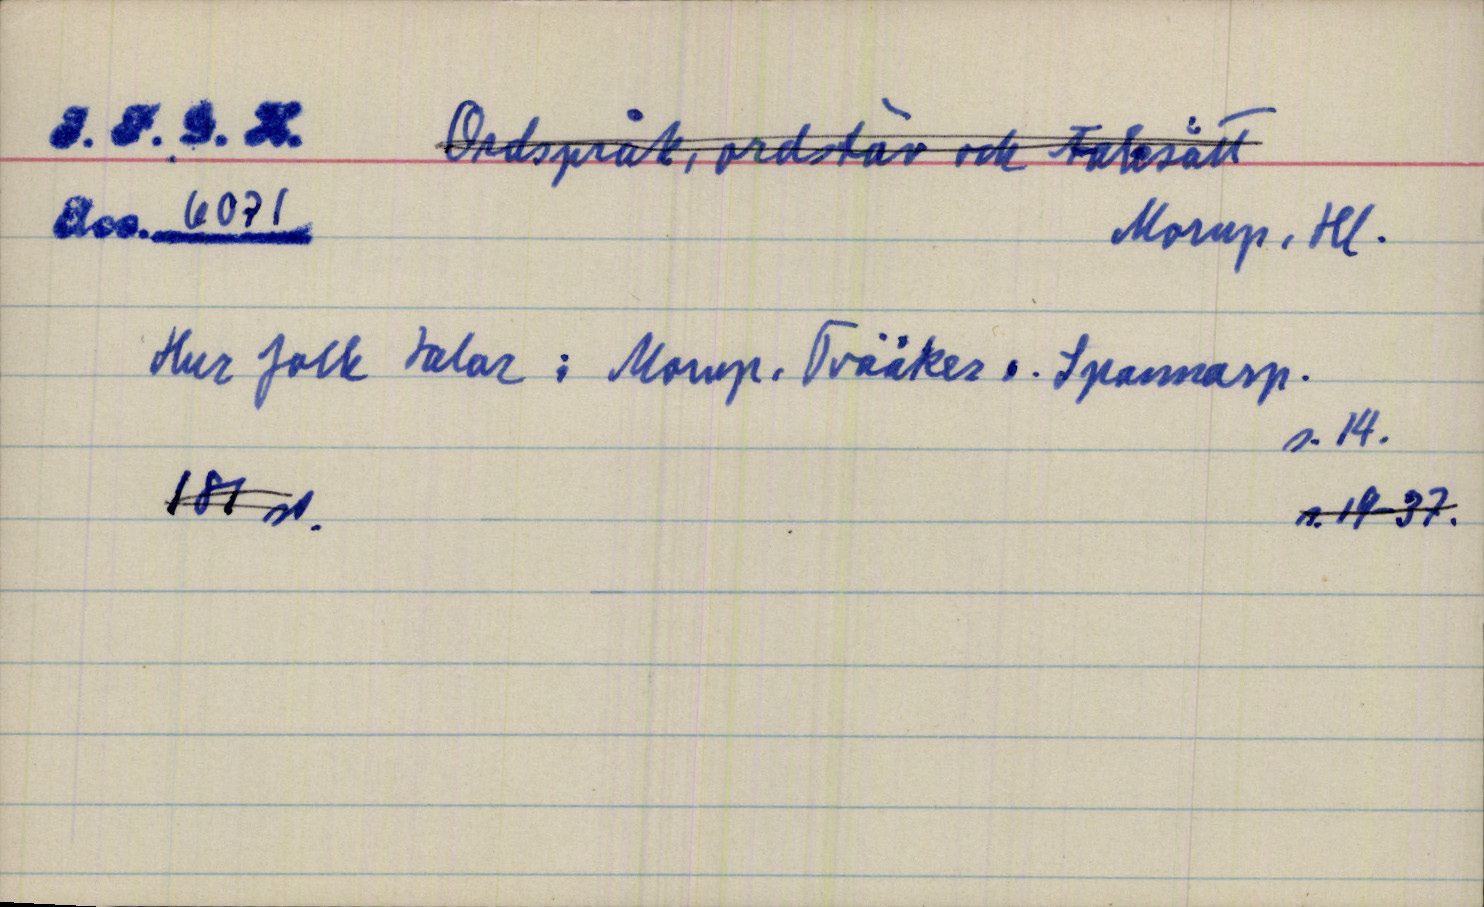 I. F. G. H. Ordspråk, ordstäv och talesätt
Acc. 6071 Morup, Hl.
Hur folk talar i Morup, Tvååker o. Spannarp.
s. 14.
181 st. s. 19-37.